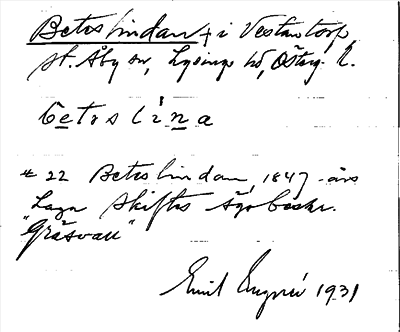 Beteslindan + i Västantorp,
St. Åby sn, Lysings hd, Östg. l.
betəslịna
# 22 Beteslindan, 1847 års
Laga skiftes ägobeskr.
"Gräsvall"
Emil 1931